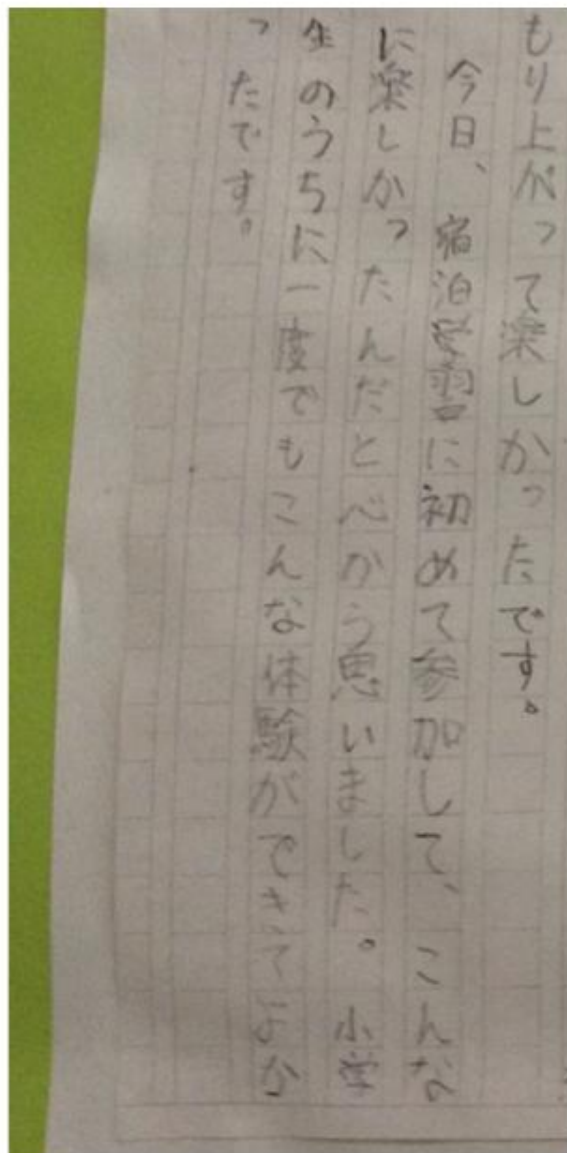 もり上がって楽しかったです。
今日、宿泊学習に初めて参加して、こんな
に楽しかったんだと心から思いました。小学
生のうちに一度でもこんな体験ができてよか
ったです。